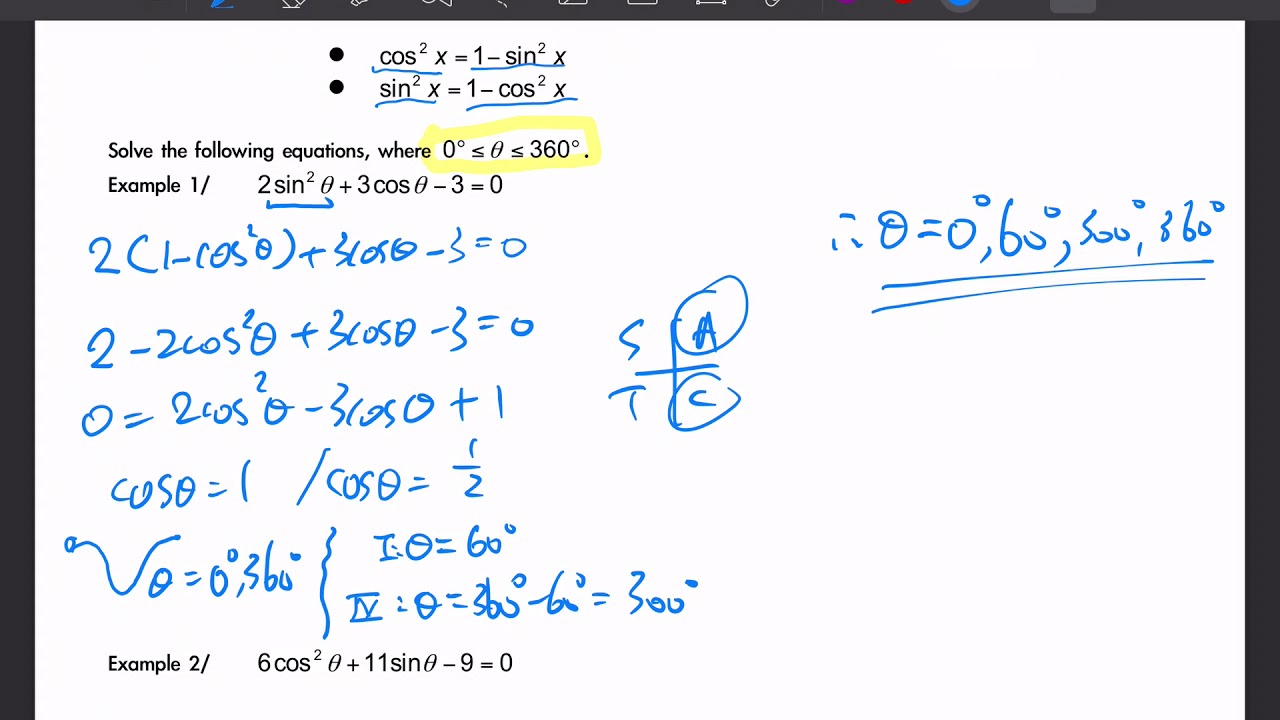 • cos² x = 1 – sin² x
• sin² x = 1 – cos² x
Solve the following equations, where 0° ≤ θ ≤ 360°.
Example 1/ 2 sin² θ + 3 cos θ – 3 = 0
2(1-cos²θ)+3cosθ-3=0
2-2cos²θ+3cosθ-3=0
0=2cos²θ-3cosθ+1
cosθ=1 /cosθ=1/2
θ=0°,360°
I:θ=60°
IV:θ=360°-60°=300°
S A
T C
∴θ=0°,60°,300°,360°
Example 2/ 6 cos² θ + 11 sin θ – 9 = 0